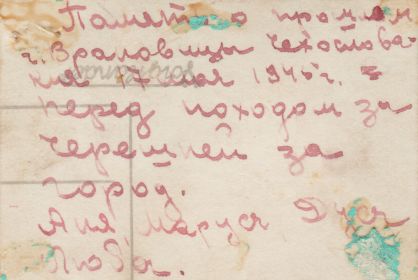 Память о прошлом
г. Врановцы Чехослова-
кия 17 мая 1945 г.
перед походом за
черешней за
город.
Аня Маруся Дуся
Люба.